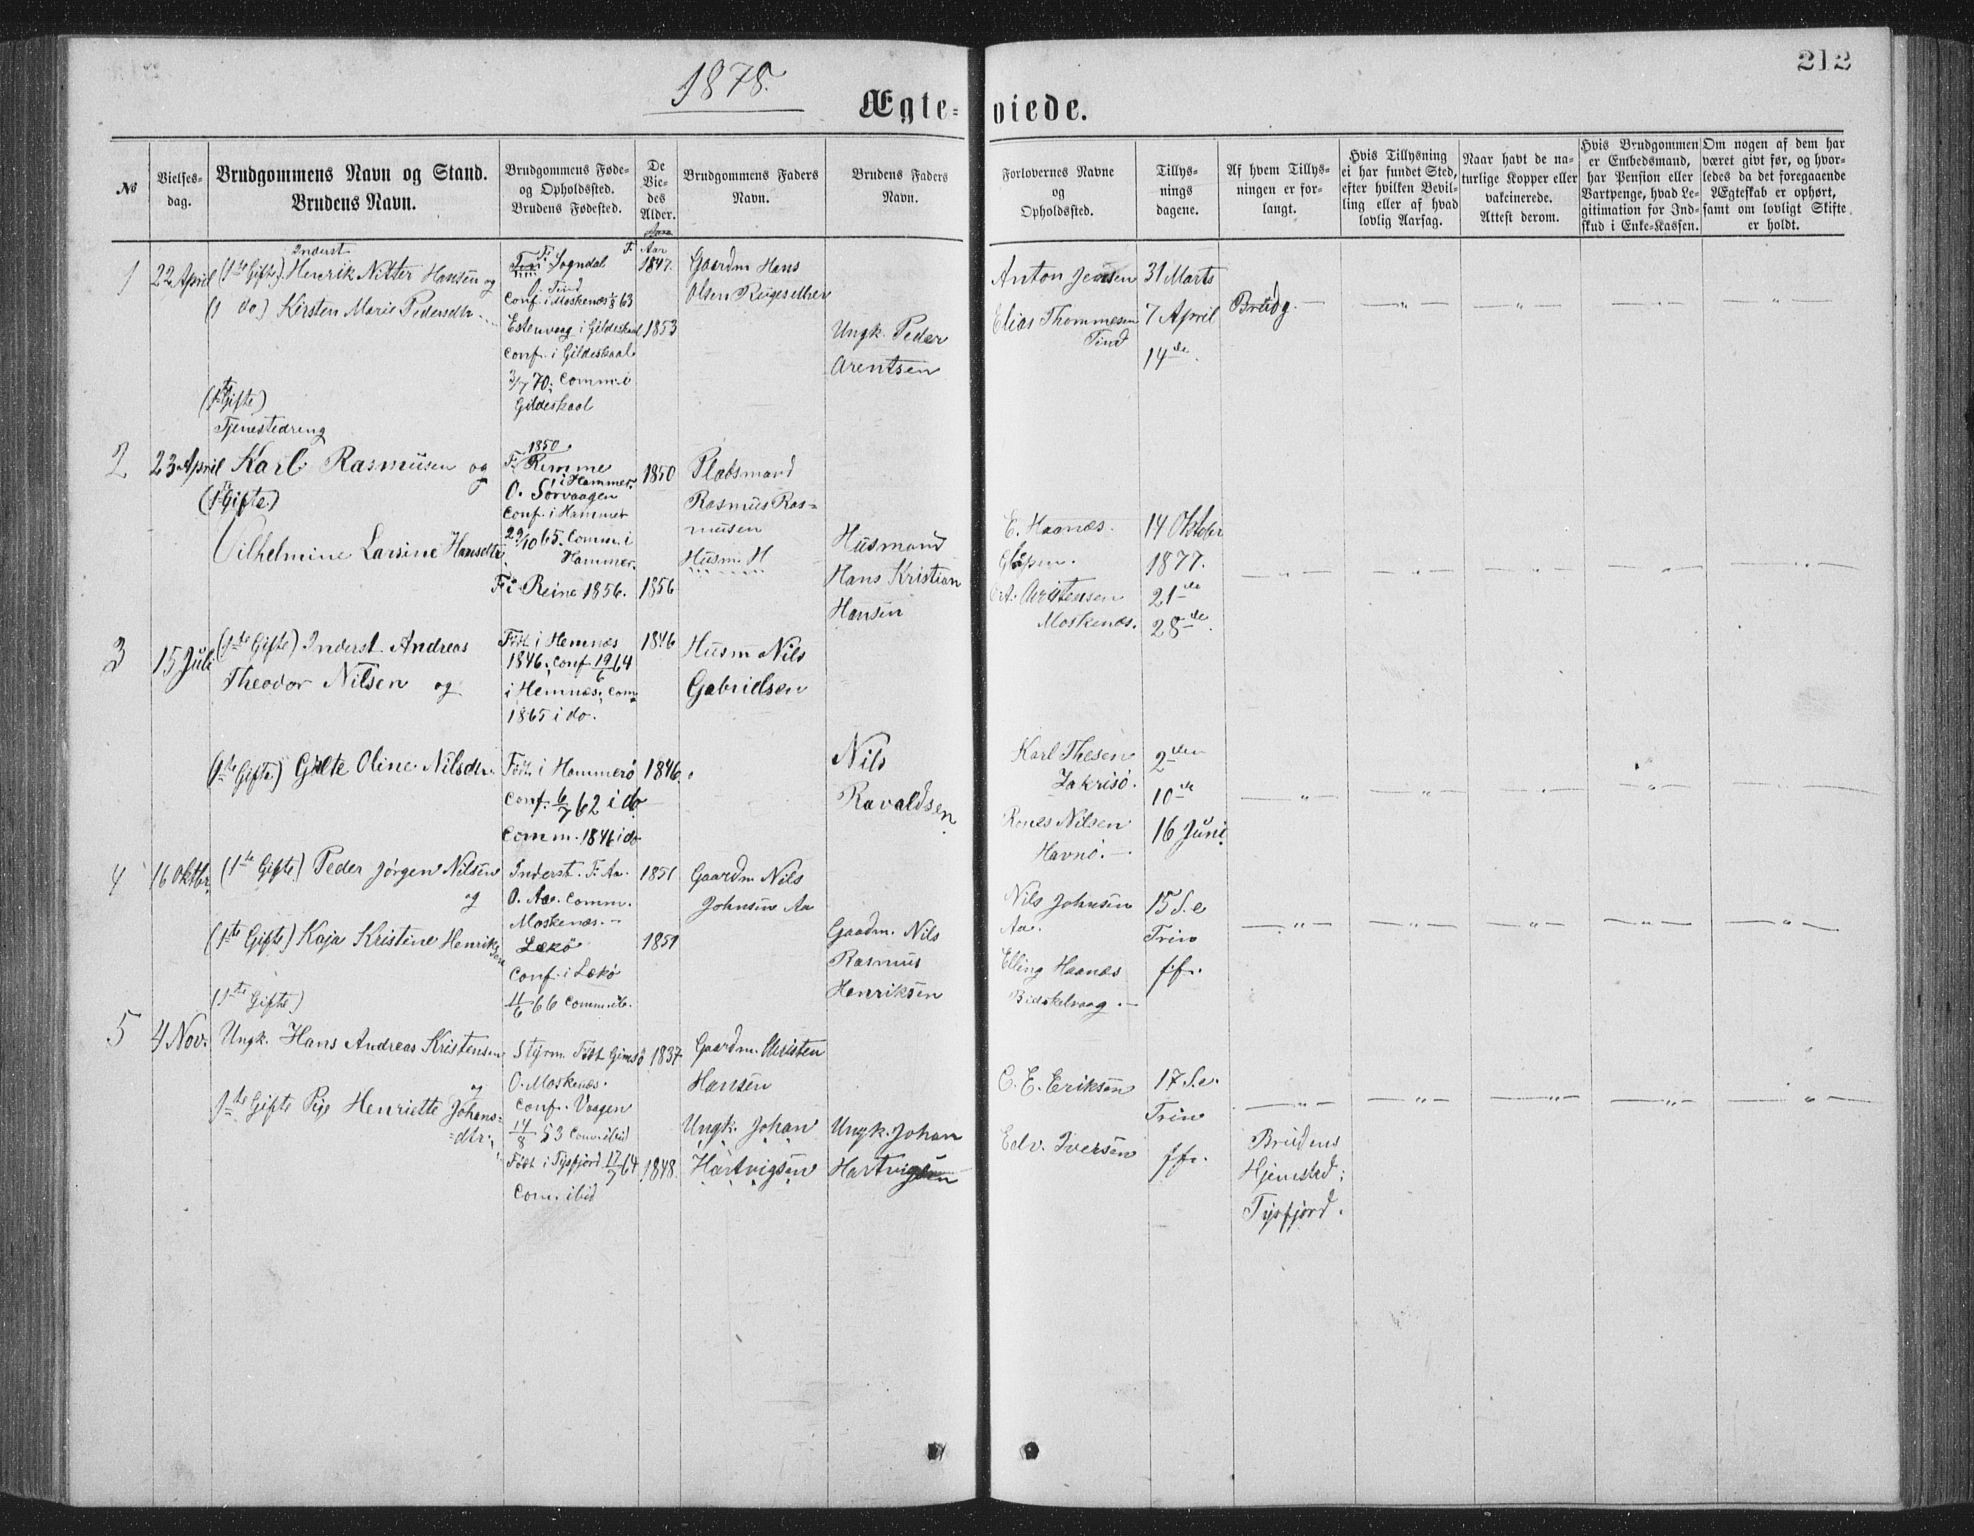 1878.
212
Ægte-viede.
№
Vielses-dag.
Brudgommens Navn og Stand.
Brudens Navn.
Brudgommens Føde- og Opholdssted.
Brudens Fødested.
De Viedes Alder.
Brudgommens Faders Navn.
Brudens Faders Navn.
Forlovernes Navne og Opholdssted.
Tillysningsdagene.
Af hvem Tillysningen er forlangt.
Hvis Tillysning ei har fundet Sted, efter hvilken Bevilling eller af hvad lovlig Aarsag.
Naar havt de naturlige Kopper eller vakcinerede. Attest derom.
Hvis Brudgommen er Embedsmand, har Pension eller Vartpenge, hvad Legitimation for Indskud i Enke-Kassen.
Om nogen af dem har været givt før, og hvorledes da det foregaaende Ægteskab er ophørt, samt om lovligt Skifte er holdt.
1
22 April
Inderst
(1ste Gifte) Henrik Nitter Hansen og
(1 do) Kirsten Marie Pedersdtr.
F. Sogndal
O. Tind
Conf. i Moskenæs 1/8 63
Estenvaag i Gildeskaal
Conf. i Gildeskaal
3/7 70. Comm. i
Gildeskaal
F. Aar
1847.
1853
Gaardm Hans
Olsen
Ungk. Peder
Arentsen
Anton Jensen
Elias Thommesen
Tind
31 Marts
7 April
14de
Brudg.
2
23 April
(1ste Gifte)
Tjenestedreng
Karl Rasmusen og
(1ste Gifte)
Vilhelmine Larsine Hansdtr.
1850
F. Rimme
i Hammer.
O. Sørvaagen
Conf. i Hammer
29/10 65. Comm. i
Hammer.
F. i Reine 1856.
1850
1856
Pladsmand
Rasmus Ras-
musen
Husm. H
Husmand
Hans Kristian
Hansen
E. Haanæs.
Glopen.
Christensen
Moskenæs.
14 Oktober
1877.
21de
28de
3
15 Juli
(1ste Gifte) Inderst Andreas
Theodor Nilsen og
(1ste Gifte) Gjilte Oline Nilsdtr.
Født i Hemnæs
1846. Conf 19/6 64
i Hemnæs, com
1865 i do.
Født i Hammerø
Conf. 6/7 62 i do
Comm. 1846 i do
1846
1846.
Husm Nils
Gabrielsen
Nils
Ravaldsen
Karl Thesen
Zakrisø.
Rones Nilsen
Havnø.
2den
10de
16 Juni
4
16 Oktbr.
(1ste Gifte) Peder Jørgen Nilsen
og
(1ste Gifte) Kaja Kristine Henriks
Inderst. F. Aa.
O. Aa. Comm.
Moskenæs.
Lekø
Conf. i Lekø
11/6 66 Comm ib.
1851
1851
Gaardm. Nils
Johnsen Aa
Gaadm. Nils
Rasmus
Henriksen
Nils Johnsen
Aa.
Elling Haanæs
15 S. e
Trin
ff.
5
4 Nov.
(1ste Gifte)
Ungk. Hans Andreas Kristensen
og
1ste Gifte Pige Henriette Johans-
dtr.
Styrm. Født Gimsø
O. Moskenæs.
Conf. Vaagen
14/8 53 Com. ibid
Født i Tysfjord 17/7 64
Com. ibid
1837
1848.
Gaardm. Christen
Hansen
Ungk. Johan
Hartvigsen
Ungk. Johan
Hartvigsen
C. E. Eriksen
Edv. Iversen
17 S. e.
Trin
ff.
Brudens
Hjemsted:
Tysfjord.